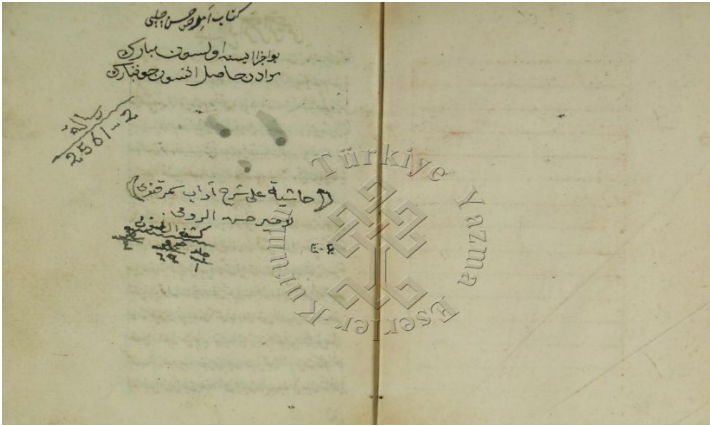 كتاب امير حسن چلبى
بو اجزا ايسه اولسون مبارك
مرادن حاصل اتسون حق تبارك
رساله
2561-2
(حاشية على شرح آداب سمرقندى)
لامير حسن الرومى.
كشف الظنون
جلد
Türkiye Yazma Eserler Kurumu